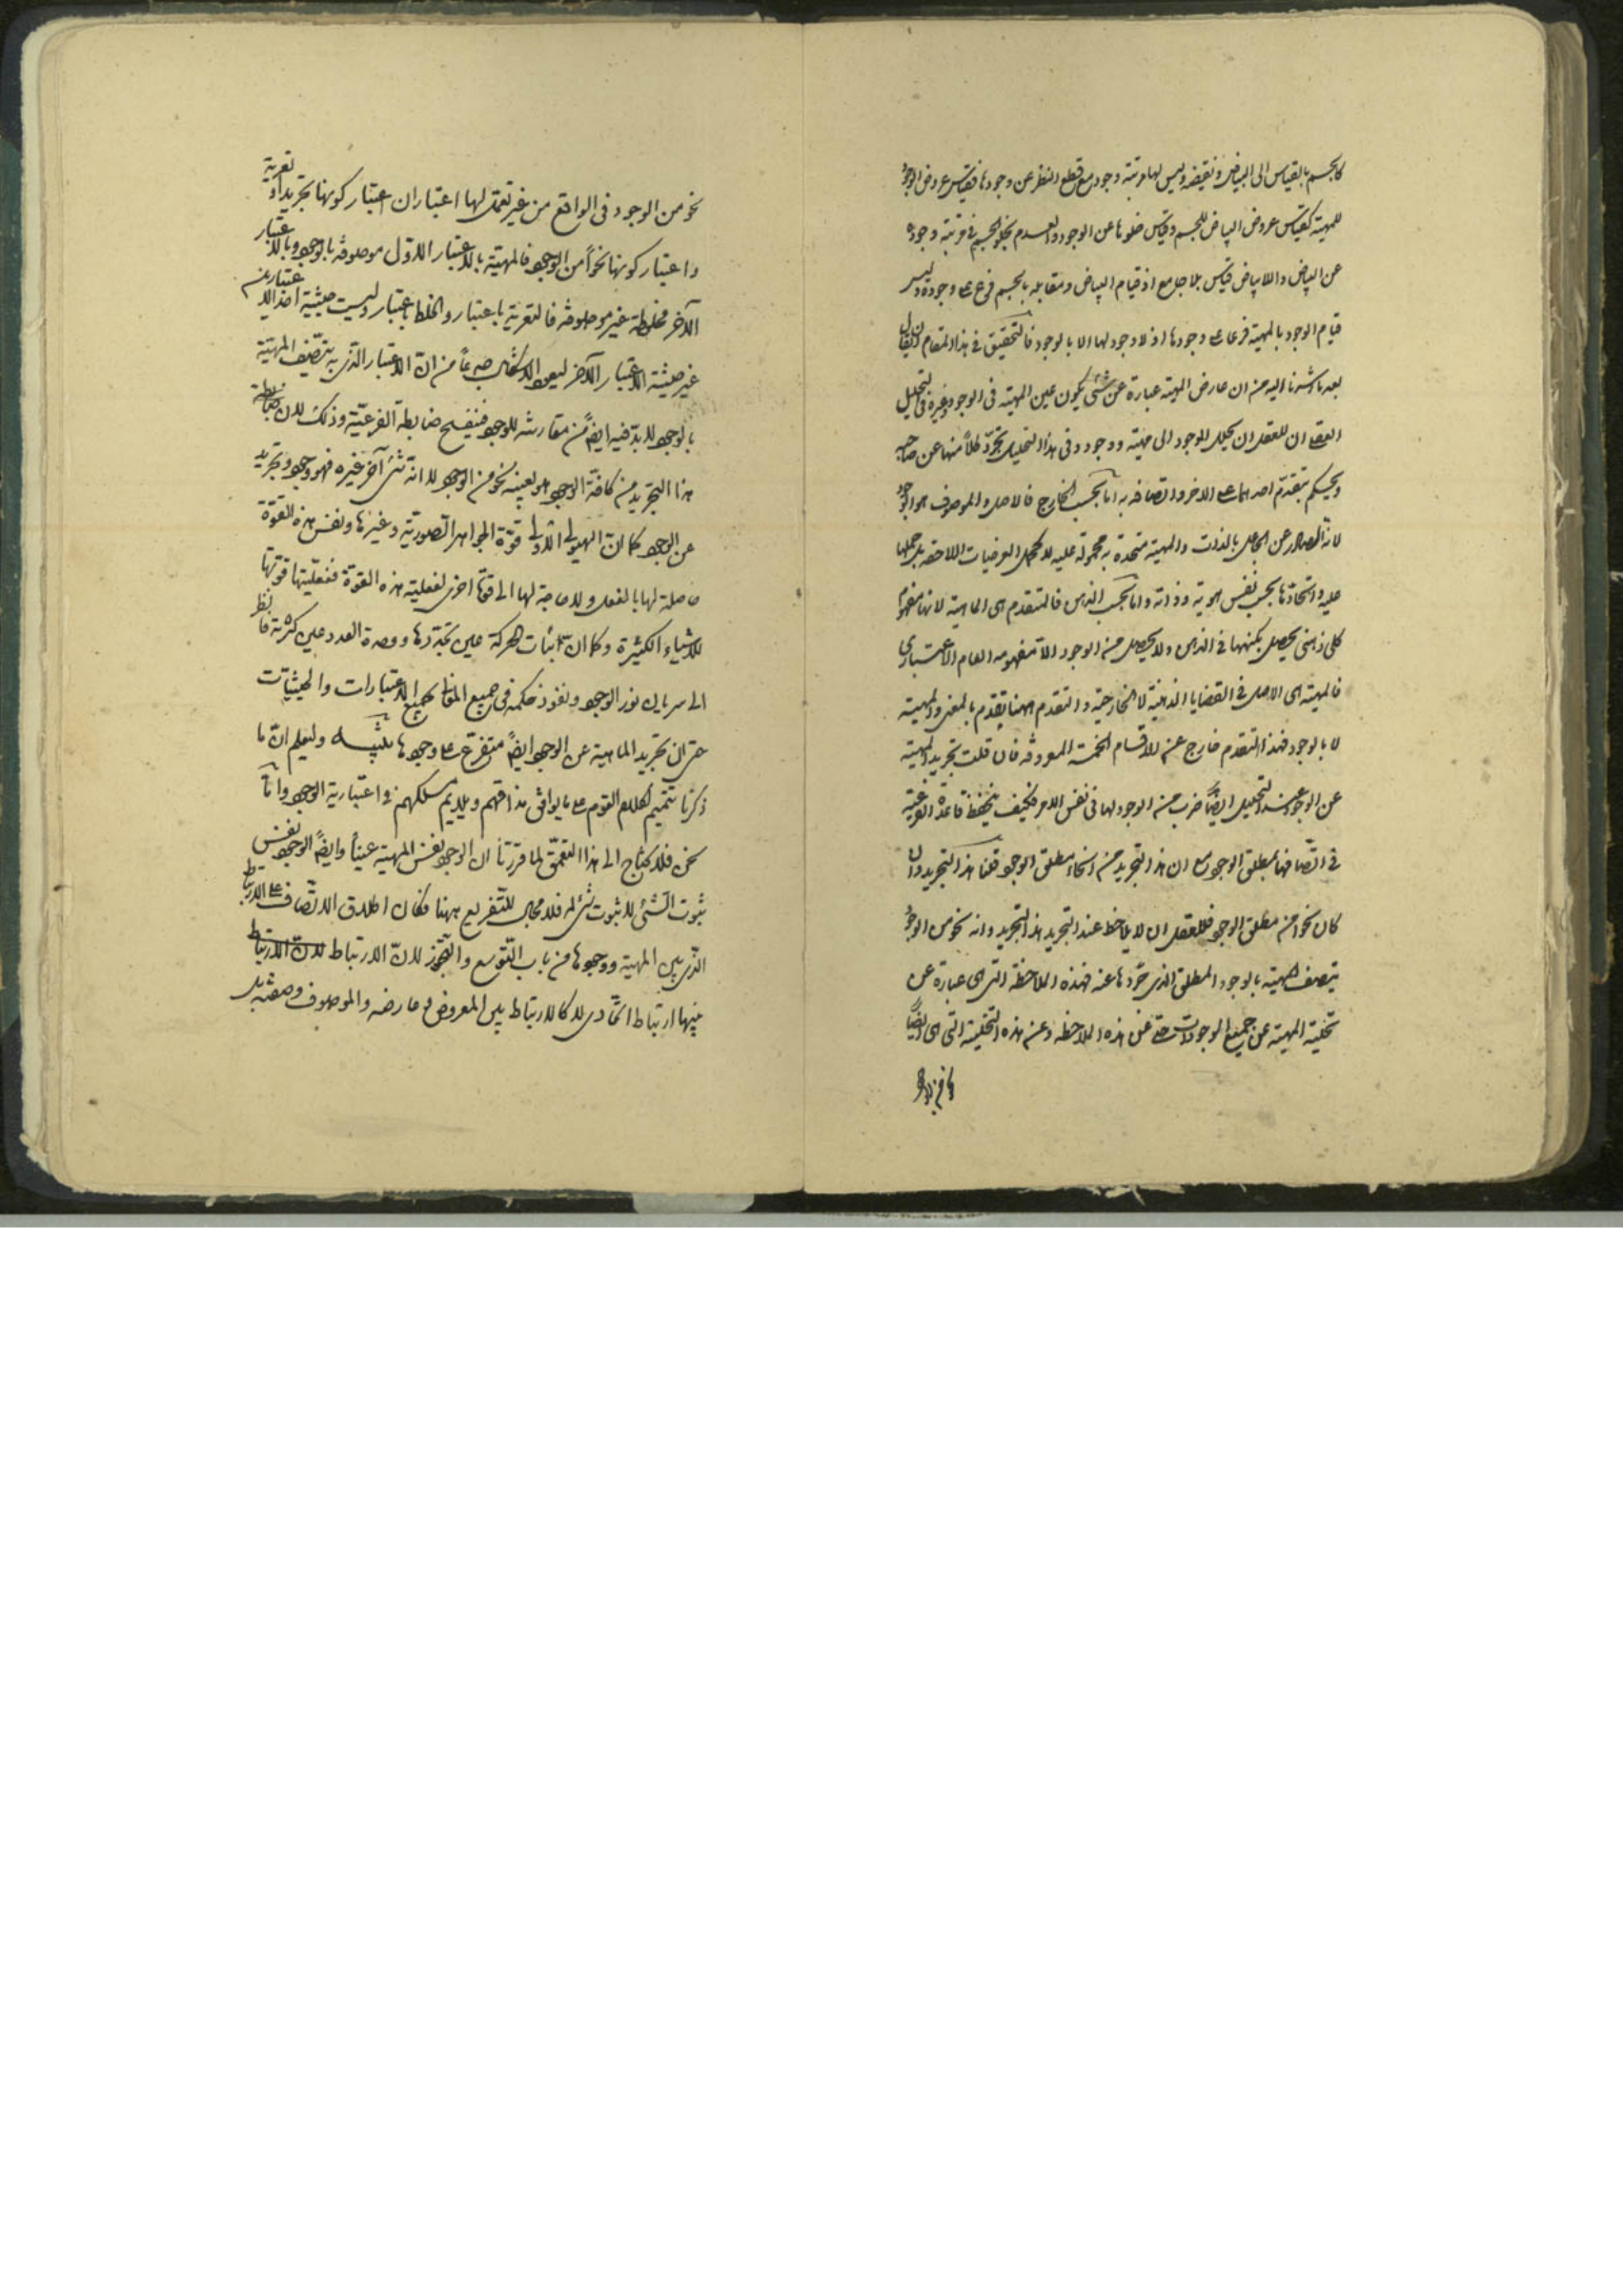 كالجسم بالقياس الى البياض ونقيضه وليس لها مرتبة وجود مع قطع النظر عن وجودها فقياس عروض الوجود
للمهية كقياس عروض البياض للجسم وقياس خلوها عن الوجود والعدم بخلو الجسم في مرتبة وجوده
عن البياض واللابياض قياس بلا جامع اذ قيام البياض ومقابله بالجسم فرع على وجوده وليس
قيام الوجود بالمهية فرعا على وجودها اذ لا وجود لها الا بالوجود فالتحقيق في هذا المقام ان يقال
بعد ما اشرنا اليه من ان عارض المهية عبارة عن شئ يكون عين المهية في الوجود وغيره في التحليل
العقلى ان للعقل ان يحلل الموجود الى مهية ووجود وفى هذا التحليل تجرّد كلاً منهما عن صاحبه
ويحكم بتقدّم احدهما على الاخر واتصافه به اما بحسب الخارج فالاصل والموصوف هو الوجود
لانه الصادر عن الجاعل بالذات والمهية متحدة به محمولة عليه لا كحمل العرضيات اللاحقة بل حملها
عليه واتحادها بحسب نفس هويته وذاته واما بحسب الذهن فالمتقدم هى الماهية لانها مفهوم
كلى ذهنى يحصل بكنهها فى الذهن ولا يحصل من الوجود الا مفهومه العام الاعتبارى
فالمهية هى الاصل فى القضايا الذهنية لا الخارجية والتقدم ههنا تقدم بالمعنى والمهية
لا بالوجود فهذا التقدم خارج عن الاقسام الخمسة المعروفة فان قلت تجريد المهية
عن الوجود عند التحليل ايضاً ضرب من الوجود لها في نفس الامر فكيف ينحفظ قاعدة الفرعية
في اتصافها بمطلق الوجود مع ان هذا التجريد من انحاء مطلق الوجود قلنا هذا التجريد وان
كان نحوا من مطلق الوجود فللعقل ان لا يلاحظ عند التجريد هذا التجريد وانه نحو من الوجود
يتصف المهية بالوجود المطلق الذى جرّدها عنه فهذه الملاحظة التى هى عبارة عن
تخلية المهية عن جميع الوجودات حتى عن هذه الملاحظة وعن هذه التخلية التى هى ايضاً
نحو من الوجود فى الواقع من غير تعمّل لها اعتباران اعتبار كونها تجريدا وتعرية
واعتبار كونها نحواً من الوجود فالمهية بالاعتبار الاول موصوفة بالوجود وبالاعتبار
الآخر مخلوطة غير موصوفة فالتعرية باعتبار والخلط باعتبار وليست حيثية احد الاعتبارين
غير حيثية الاعتبار الآخر ليعود الاشكال جذعاً من انّ الاعتبار الذى به يتصف المهية
بالوجود لا بدّ فيه ايضاً من مقارنته للوجود فتنفسخ ضابطة الفرعيّة وذلك لان
هذا التجريد من كافة الوجود هو بعينه نحو من الوجود لا انه شئ آخر غيره فهو وجود وتجريد
عن الوجود كما انّ الهيولى الاولى قوّة الجواهر الصوريّة وغيرها ونفس هذه القوّة
حاصلة لها بالفعل ولا حاجة لها الى قوّة اخرى لفعلية هذه القوّة ففعليّتها قوتها
للاشياء الكثيرة وكما انّ ثبات الحركة عين تجدّدها ووحدة العدد عين كثرته فانظر
الى سريان نور الوجود ونفوذ حكمه فى جميع المعانى بجميع الاعتبارات والحيثيات
حتى ان تجريد الماهية عن الوجود ايضاً متفرع على وجودها تنبيه وليعلم انّ ما
ذكرنا تتميم لكلام القوم على ما يوافق مذاقهم ويلايم مسلكهم فى اعتبارية الوجود واما
نحن فلا نحتاج الى هذا التعمّق لما قررنا ان الوجود نفس المهية عيناً وايضاً الوجود نفس
ثبوت الشئ لا ثبوت شئ له فلا مجال للتفريع ههنا فكان اطلاق الاتصاف على الارتباط
الذى بين المهية ووجودها من باب التوسع والتجوّز لانّ الارتباط لانّ الارتباط
بينهما ارتباط اتحادى لا كالارتباط بين المعروض وعارضه والموصوف وصفته بل